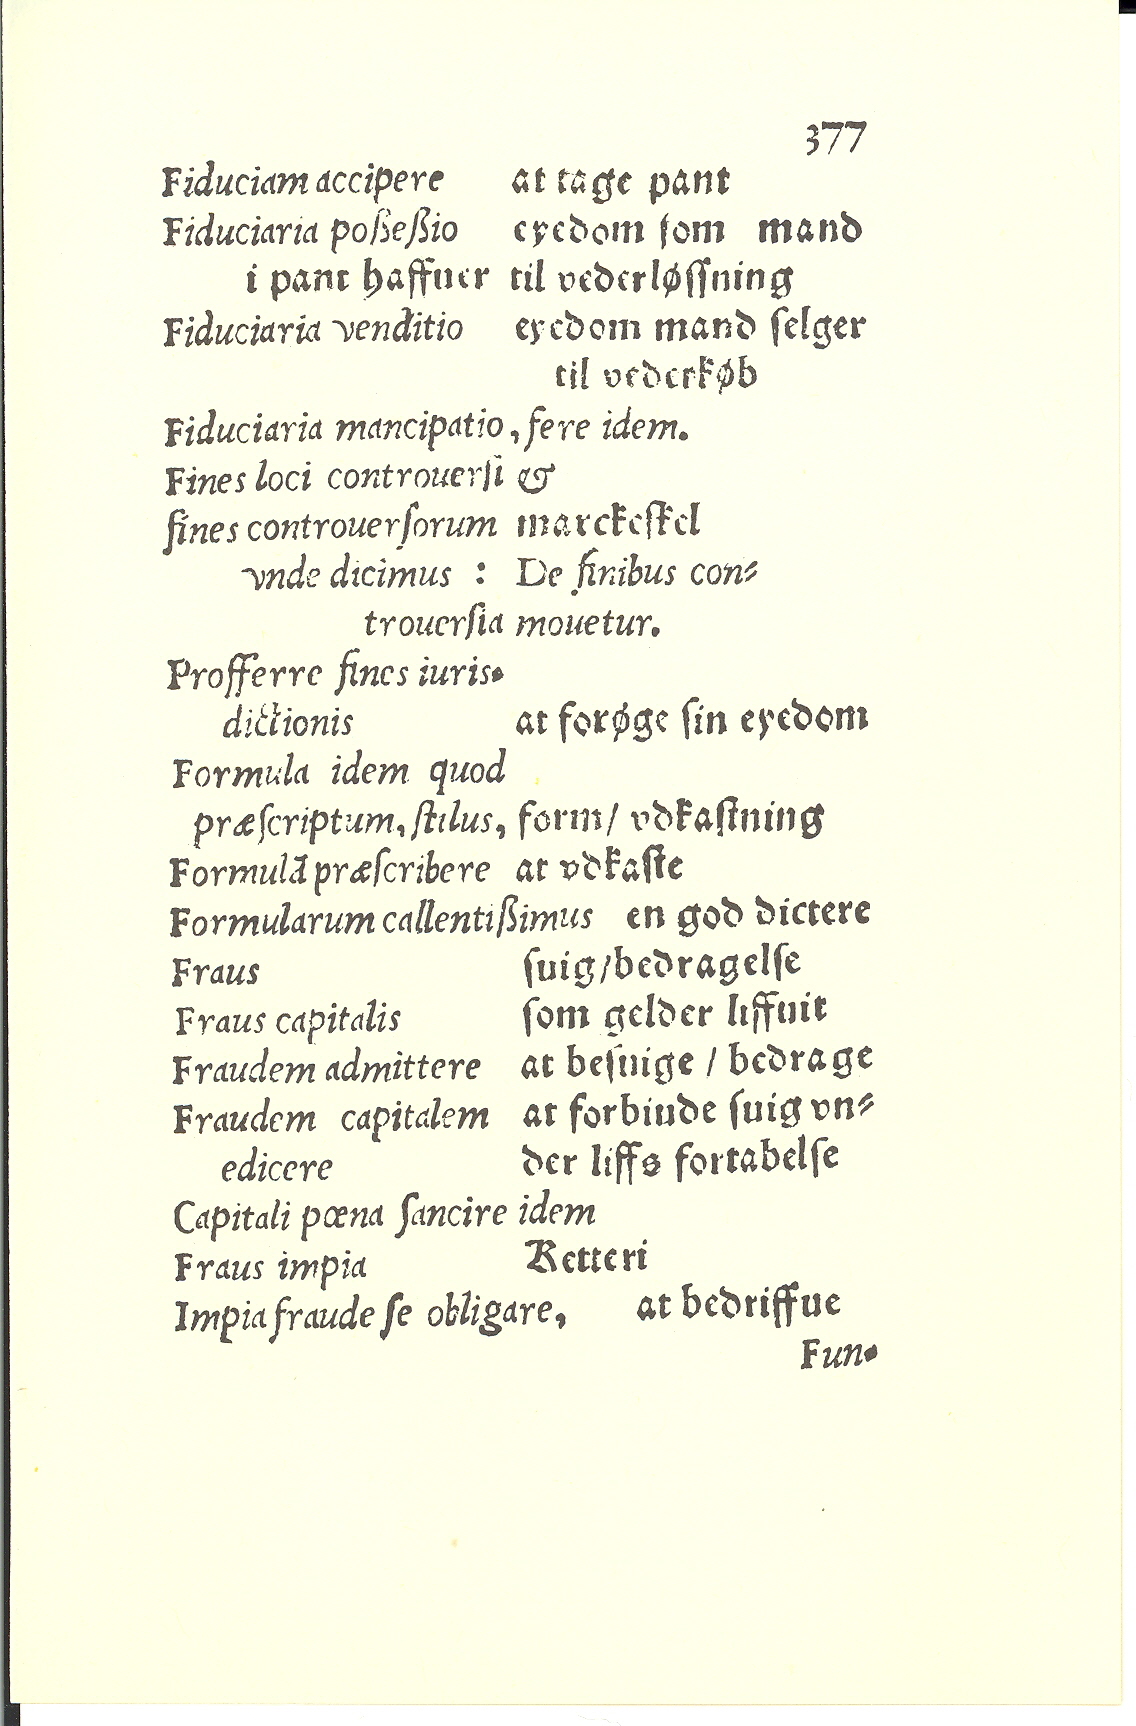 377
Fiduciam accipere at tage pant
Fiduciaria poßeßio eyedom ſom mand
i pant haffuer til vederløſſning
Fiduciaria venditio eyedom mand ſelger
til vederkøb
Fiduciaria mancipatio, fere idem.
Fines loci controuerſi &
fines controuerſorum marckeſkel
vnde dicimus : De finibus con⸗
trouerſia mouetur.
Profferre fines iuris-
dictionis at forøge ſin eyedom
Formula idem quod
præſcriptum, ſtilus, form/ vdkaſtning
Formulã præſcribere at vdkaſte
Formularum callentißimus en god dictere
Fraus ſuig/bedragelſe
Fraus capitalis ſom gelder liffuit
Fraudem admittere at beſuige / bedrage
Fraudem capitalem at forbiude ſuig vn⸗
edicere der liffs fortabelſe
Capitali pœna ſancire idem
Fraus impia Ketteri
Impia fraude ſe obligare, at bedriffue
Fun-